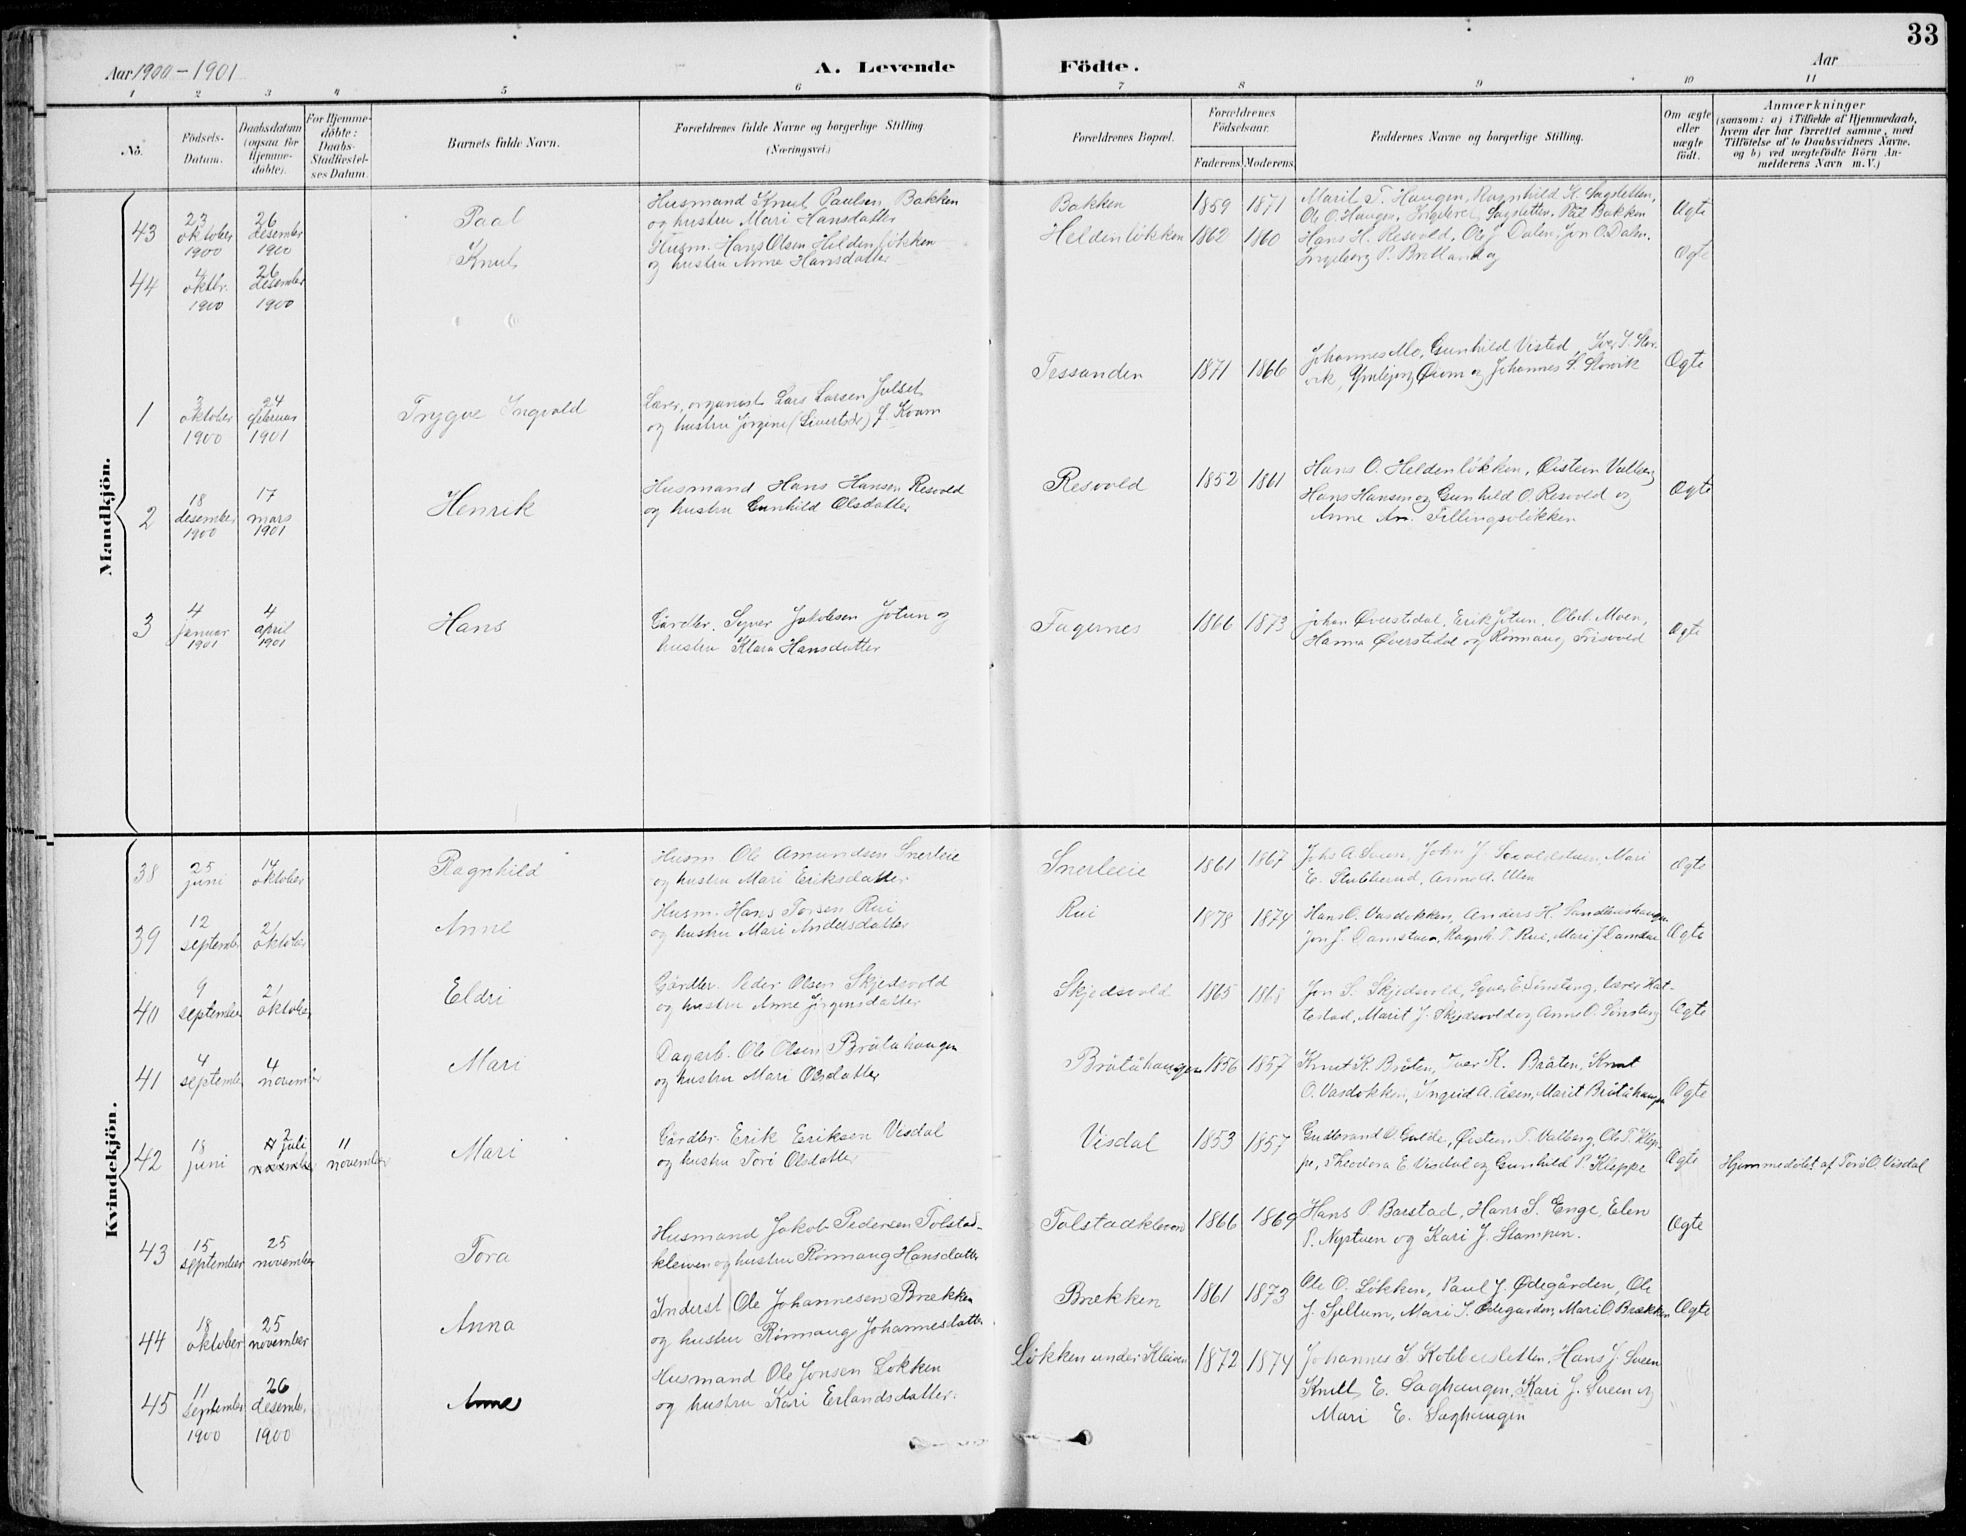 33
Aar 1900-1901 A. Levende Födte. Aar
1 2 3 4 5 6 7 8 9 10 11
No. Födsels-Datum. Daabsdatum (ogsaa for Hjemme-döbte). For Hjemme-döbte: Daabs-Stadfæstel-ses Datum. Barnets fulde Navn. Forældrenes fulde Navne og borgerlige Stilling (Næringsvei.) Forældrenes Bopæl. Forældrenes Födselsaar. Faderens. Moderens. Faddernes Navne og borgerlige Stilling. Om ægte eller uægte födt. Anmærkninger (saasom: a) i Tilfælde af Hjemmedaab, hvem der har forrettet samme, med Tilföielse af to Daabsvidners Navne. og b) ved uægtefödte Börn An-melderens Navn m. V.)
Mandkjön.
43 23 oktober 1900 26 desember 1900 Paal Husmand Knut Paulsen Bakken
og hustru Mari Hansdatter Bakken 1859 1871 Marit T. Haugen, Ragnhild K. Sagsletten,
Ole O. Haugen, Sagsletten, Pål Bakken Ægte
44 4 oktbr. 1900 26 desember 1900 Knut Husm. Hans Olsen Heldenløkken
og hustru Anne Hansdatter Heldenløkken 1862 1860 Hans H. Resvold, Ole J. Dalen, Jon O. Dalen,
Ingeborg P. Ægte
1 3 oktober 1900 24 februar 1901 Trygve Ingvald Lærer, organist Lars Larsen Julset
og hustru Jørgine (Sivertsdr) f. Kvam Tessanden 1871 1866 Johannes Mo, Gunhild Visted, Iver J. Stor-
vik, Øiom og Johannes Storvik Ægte
2 18 desember 1900 17 mars 1901 Henrik Husmand Hans Hansen Resvold
og hustru Gunhild Olsdatter Resvold 1852 1861 Hans O. Heldenløkken, Øistein Valberg,
Hans Hansen og Gunhild O. Resvold og
Anne An. Fillingsvløkken Ægte
3 4 januar 1901 4 april 1901 Hans Gårdbr. Syver Jakobsen Jotun og
hustru Klara Hansdatter Fagernes 1866 1873 Johan Øverstedal, Erik Jotun, Moen,
Hanna Øverstedal og Rønnaug Trisvold Ægte
Kvindekjön.
38 25 juni 14 oktober Ragnhild Husm. Ole Amundsen Snerleie
og hustru Mari Eriksdatter Snerleie 1861 1867 Johs A. Sveen, John J. Mari
E. Stubberud, Anne A. Ulen Ægte
39 12 september 21 oktober Anne Husm. Hans Torsen Rui
og hustru Mari Andersdatter Rui 1878 1874 Hans O. Vasdokken, Anders H. Sandbushaugen
Jon J. Damstuen, Ragnh. T. Rui, Mari J. Damstuen Ægte
40 9 september 21 oktober Eldri Gårdbr. Peder Olsen Skjedsvold
og hustru Anne Jörgensdatter Skjedsvold 1865 1868 Jon S. Skjedsvold, Syver E. Sønsteng, lærer Hat-
testad, Marit J. Skjedsvold og Anne O. Sønsteng Ægte
41 4 september 4 november Mari Dagarb. Ole Olsen Bråtåhaugen
og hustru Mari Olsdatter Bråtåhaugen 1856 1857 Knut K. Bråten, Iver K. Bråten, Knut
O. Vasdokken, Ingrid A. Åsen, Marit Bråtåhaugen Ægte
42 18 juni 2 juli 11 november Mari Gårdbr. Erik Eriksen Visdal
og hustru Torö Olsdatter Visdal 1853 1857 Gudbrand O. Gulde, Øistein T. Valberg, Ole T. Klep-
pe, Theodora E. Visdal og Gunhild P. Kleppe Ægte Hjemmedøbt af Torö O. Visdal
43 15 september 25 november Tora Husmand Jakob Pedersen Tolstad-
kleiven og hustru Rønnaug Hansdatter Tolstadkleiven 1866 1869 Hans P. Barstad, Hans S. Enge, Elen
P. Nystuen og Kari J. Stampen. Ægte
44 18 oktober 25 november Anna Inderst Ole Johannesen Brækken
og hustru Rønnaug Johannesdatter Brækken 1861 1873 Ole O. Løkken, Paul J. Ødegården, Ole
J. Sjellum, Mari S. Ødegården, Mari O. Brækken Ægte
45 11 september 1900 26 desember 1900 Anne Husmand Ole Jonsen Løkken
og hustru Kari Erlandsdatter. Løkken under Kleiven 1872 1874 Johannes S. Kobbersletten, Hans J. Sveen
Knut E. Saghaugen, Kari J. Sveen og
Mari E. Saghaugen